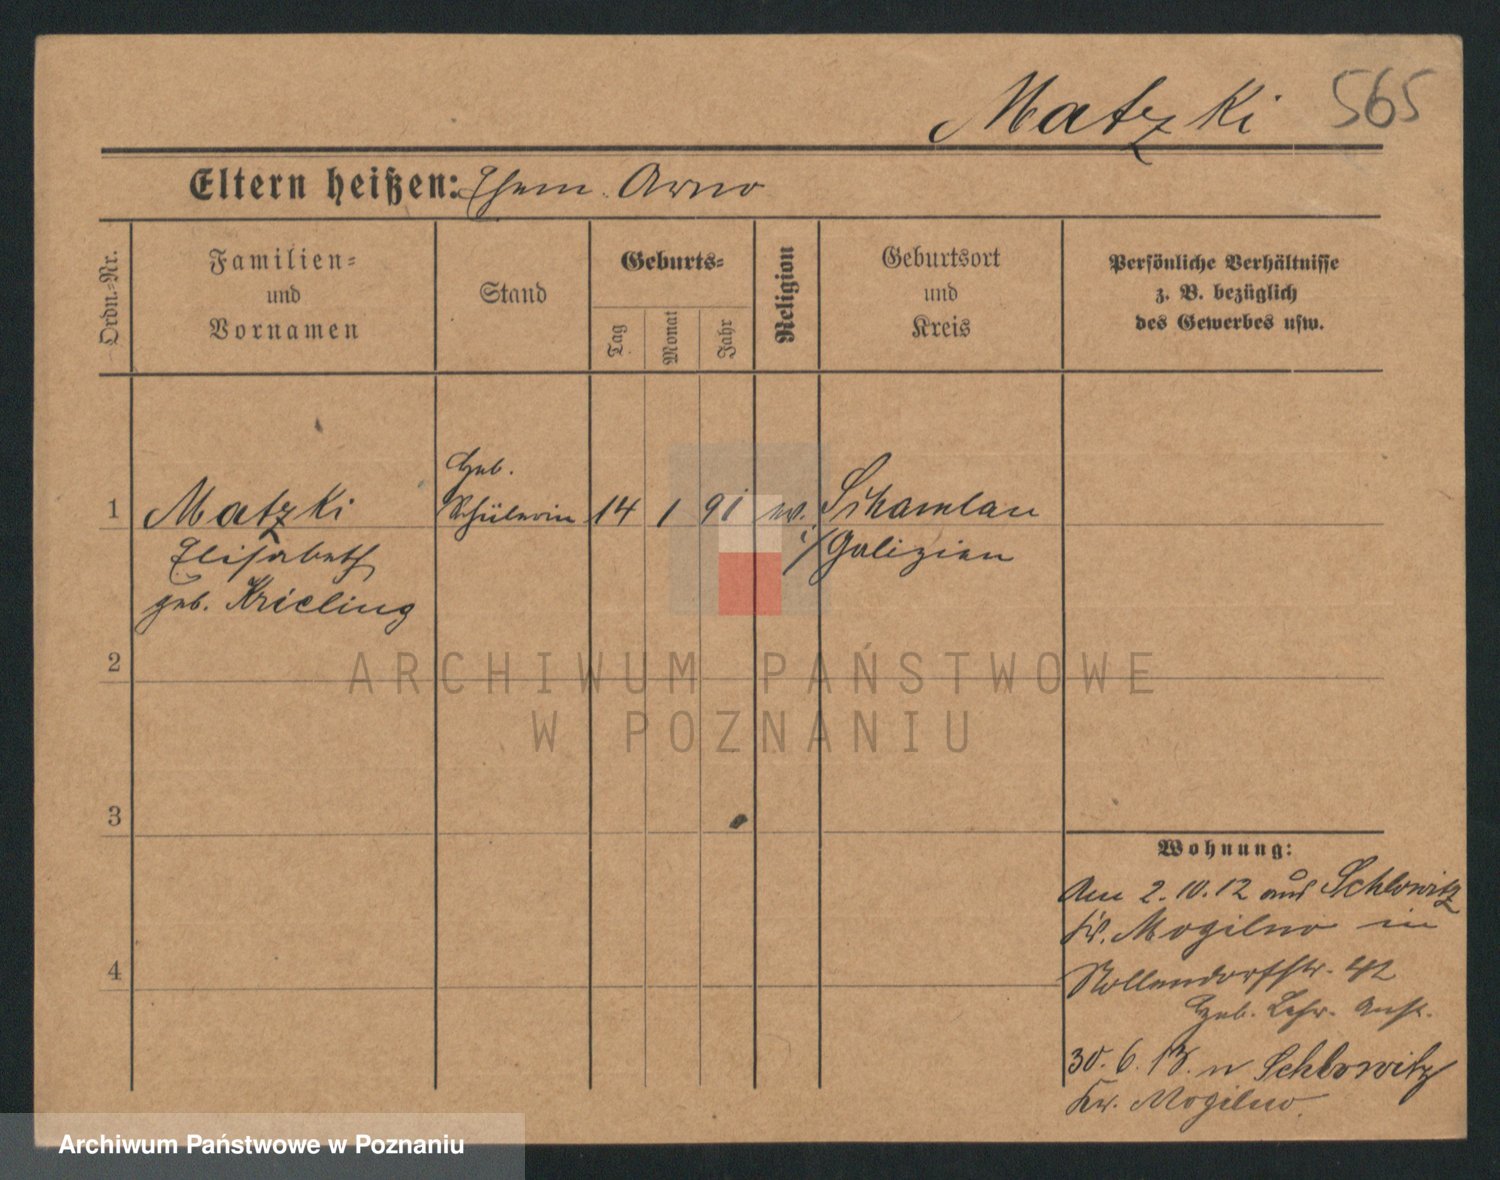 Matzki 565
Eltern heißen: Ehem. Arno
Ordn.-Nr.
Familien-
und
Vornamen
Stand
Geburts-
Tag
Monat
Jahr
Religion
Geburtsort
und
Kreis
Persönliche Verhältnisse
z. B. bezüglich
des Gewerbes usw.
Heb.
1 Matzki Schülerin 14 1 91 ev. Sikamlau
Elisabeth i/Galizien
geb. Krieling
2
3
4
Wohnung:
Am 2.10.12 aus Schlowitz
Kr. Mogilno in
Nollendorfstr. 42
Heb. Lehr. Anst.
30. 6. 13. n Schlowitz
Kr. Mogilno.
ARCHIWUM PAŃSTWOWE
W POZNANIU
Archiwum Państwowe w Poznaniu